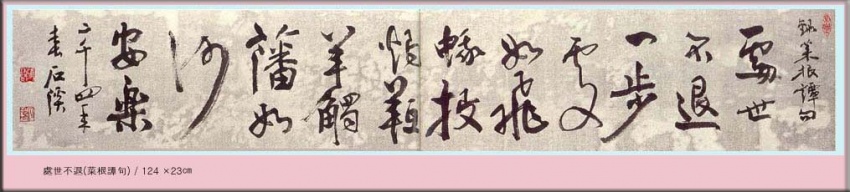 錄菜根譚句
處世
不退
一步
處
如飛
蛾投
燭羝
羊觸
藩如
何
安樂
二千四年
春石
處世不退(菜根譚句) / 124 ×23㎝